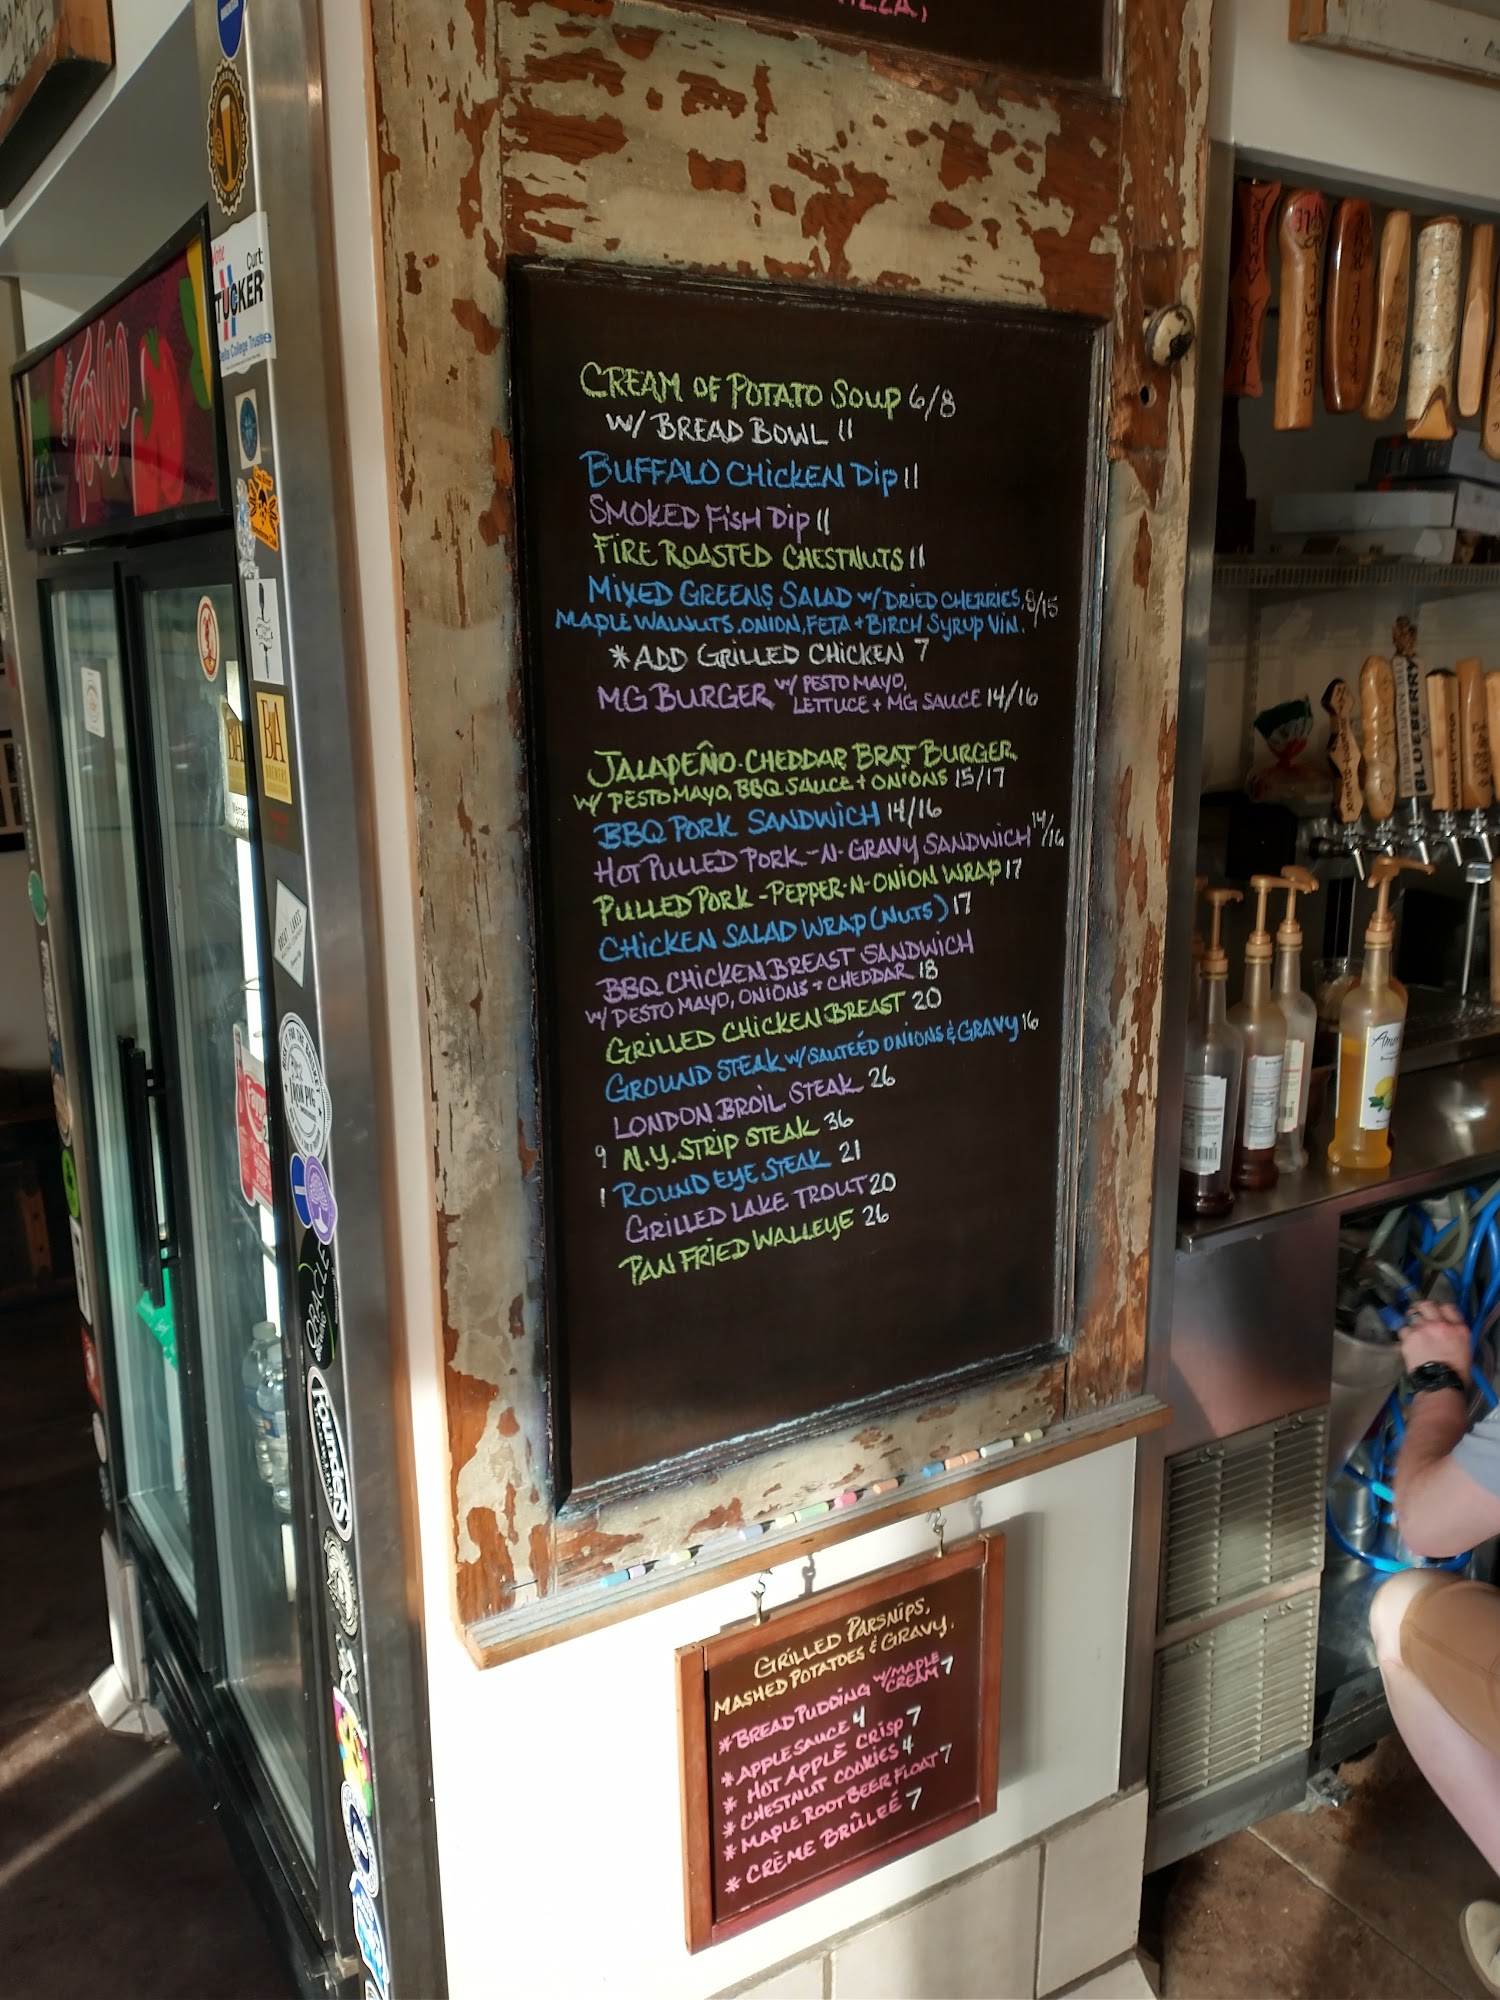 Vote
Curt
TUCKER
Delta College Trustee
Faygo
CREAM OF POTATO SOUP 6/8
W/ BREAD BOWL 11
BUFFALO CHICKEN DIP 11
SMOKED FISH DIP 11
FIRE ROASTED CHESTNUTS 11
MIXED GREENS SALAD W/ DRIED CHERRIES, 8/15
MAPLE WALNUTS, ONION, FETA + BIRCH SYRUP VIN.
*ADD GRILLED CHICKEN 7
MG BURGER W/ PESTO MAYO,
LETTUCE + MG SAUCE 14/16
JALAPEÑO-CHEDDAR BRAT BURGER
W/ PESTO MAYO, BBQ SAUCE + ONIONS 15/17
BBQ PORK SANDWICH 14/16
HOT PULLED PORK-N-GRAVY SANDWICH 14/16
PULLED PORK-PEPPER-N-ONION WRAP 17
CHICKEN SALAD WRAP (NUTS) 17
BBQ CHICKEN BREAST SANDWICH
W/ PESTO MAYO, ONIONS + CHEDDAR 18
GRILLED CHICKEN BREAST 20
GROUND STEAK W/ SAUTEÉD ONIONS & GRAVY 16
LONDON BROIL STEAK 26
9 N.Y. STRIP STEAK 36
1 ROUND EYE STEAK 21
GRILLED LAKE TROUT 20
PAN FRIED WALLEYE 26
GRILLED PARSNIPS,
MASHED POTATOES & GRAVY.
*BREAD PUDDING W/ MAPLE CREAM 7
*APPLESAUCE 4
*HOT APPLE CRISP 7
*CHESTNUT COOKIES 4
*MAPLE ROOT BEER FLOAT 7
*CRÈME BRÛLEÉ 7
BA
IRON PIG
ORACLE
BREWING
Founders
BLUEBERRY